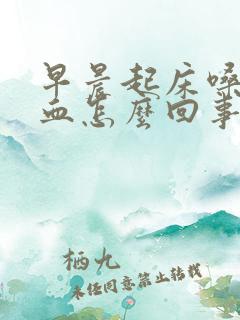 早晨起床嗓
血怎麼回事
栖九
未经同意禁止转载